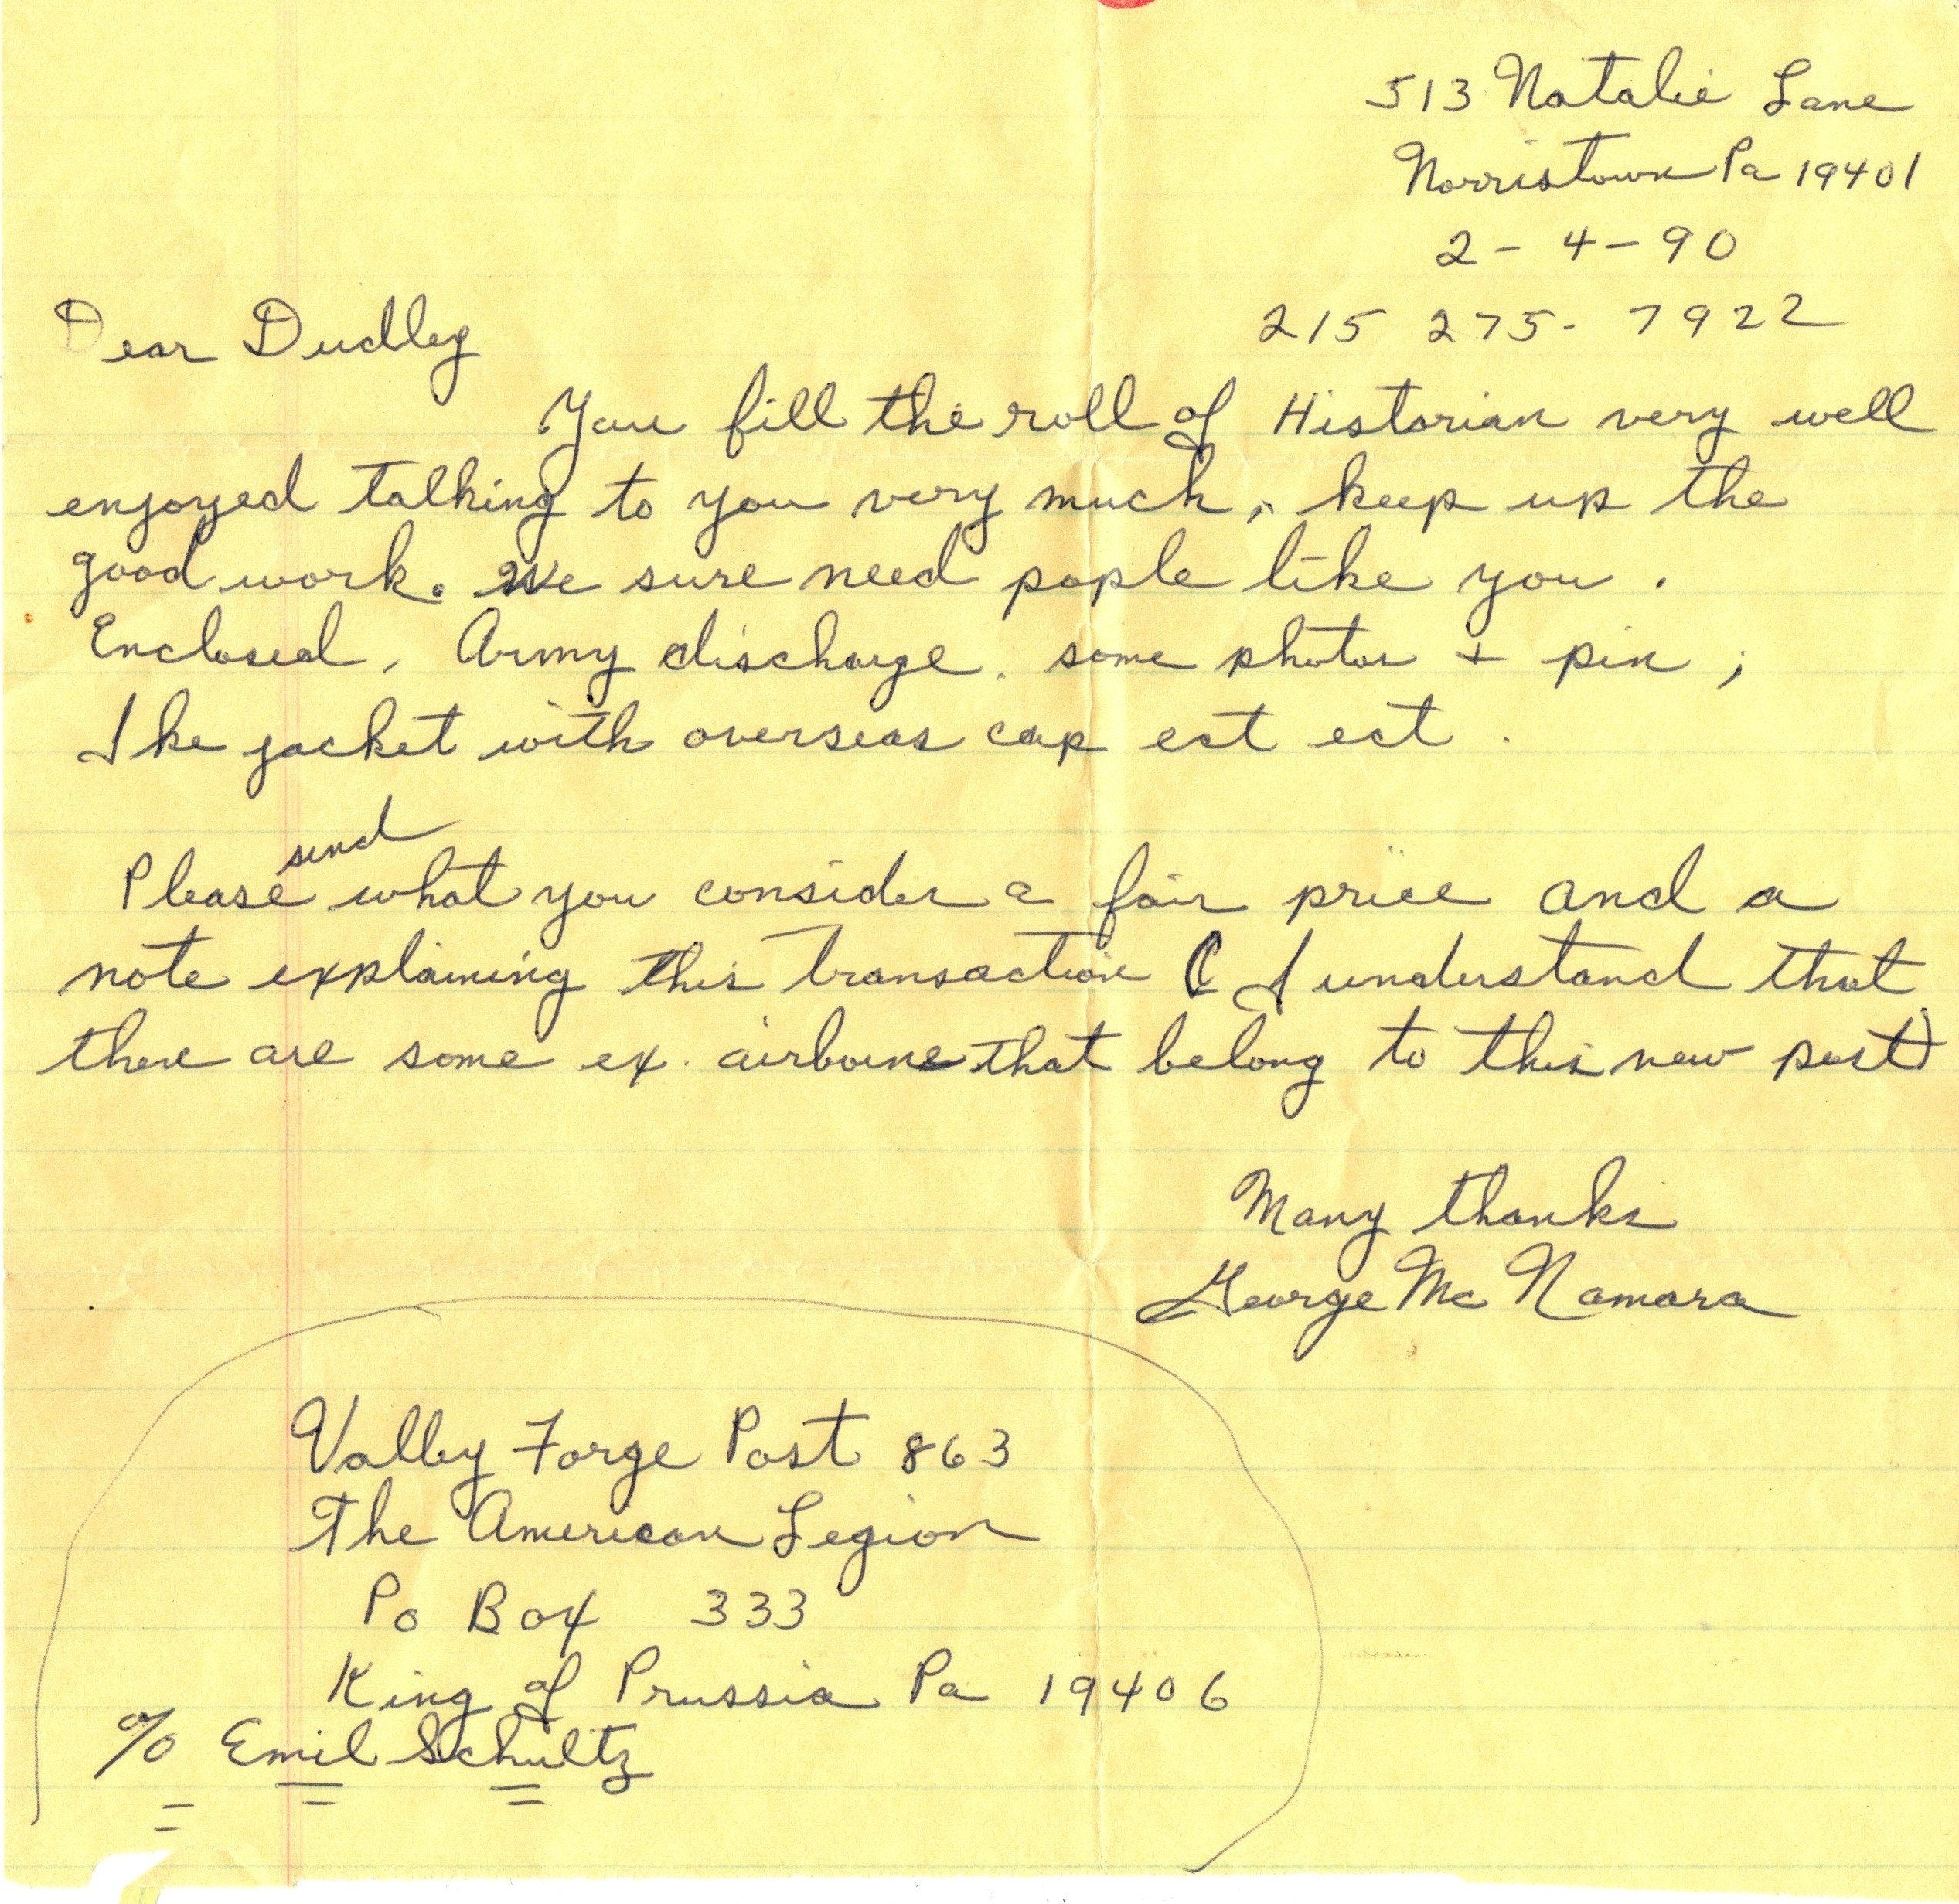 513 Natalie Lane
Norristown Pa 19401
2-4-90
215 275-7922
Dear Dudley
You fill the roll of Historian very well
enjoyed talking to you very much, keep up the
good work. We sure need pople like you.
Enclosed, Army discharge. some photos + pin;
Ike jacket with overseas cap ect ect.
send
Please what you consider a fair price and a
note explaining this transaction ( I understand that
there are some ex. airborne that belong to this new post)
Many thanks
George Mc Namara
Valley Forge Post 863
The American Legion
Po Box 333
King of Prussia Pa 19406
% Emil Schultz